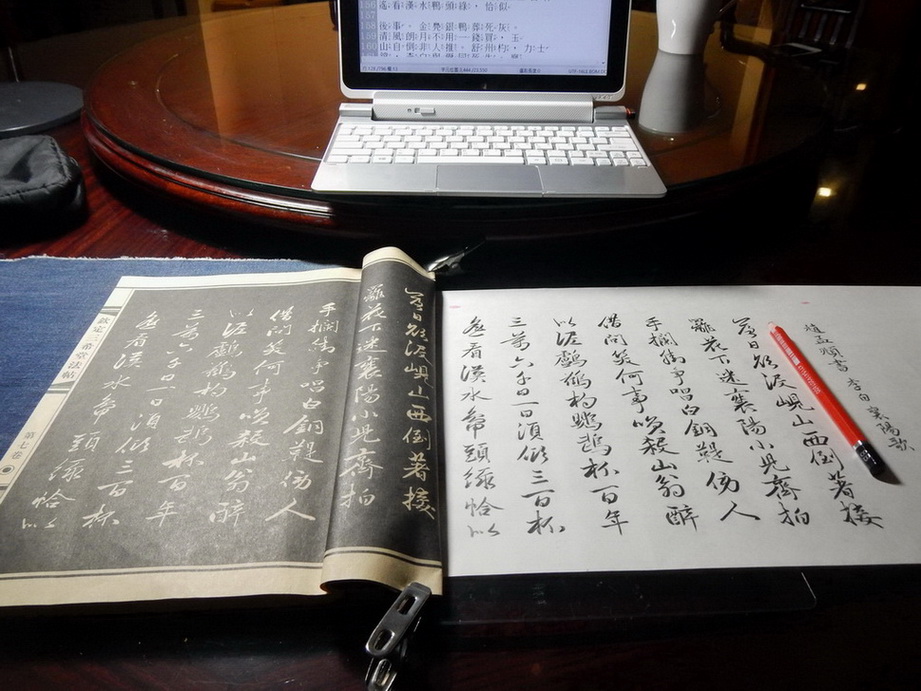 遙看漢水鴨頭綠，恰似。
157
158
159 清風朗月不用一錢買，玉
160 山自倒非人推。舒州杓，力士
落日欲沒峴山西倒著接
籬花下迷襄陽小兒齊拍
手攔街爭唱白銅鞮傍人
借問笑何事笑殺山翁醉
似泥鸕鶿杓鸚鵡杯百年
三萬六千日一日須傾三百杯
遙看漢水鴨頭綠恰似
欽定三希堂法帖
第七卷
趙孟頫書 李白 襄陽歌
落日欲沒峴山西倒著接
籬花下迷襄陽小兒齊拍
手攔街爭唱白銅鞮傍人
借問笑何事笑殺山翁醉
似泥鸕鶿杓鸚鵡杯百年
三萬六千日一日須傾三百杯
遙看漢水鴨頭綠恰似